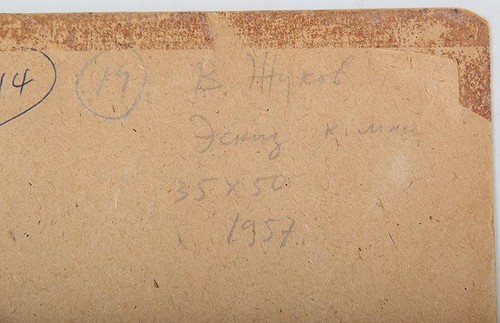 14 19 В. Жуков
Эскиз
35 х 50
1957.